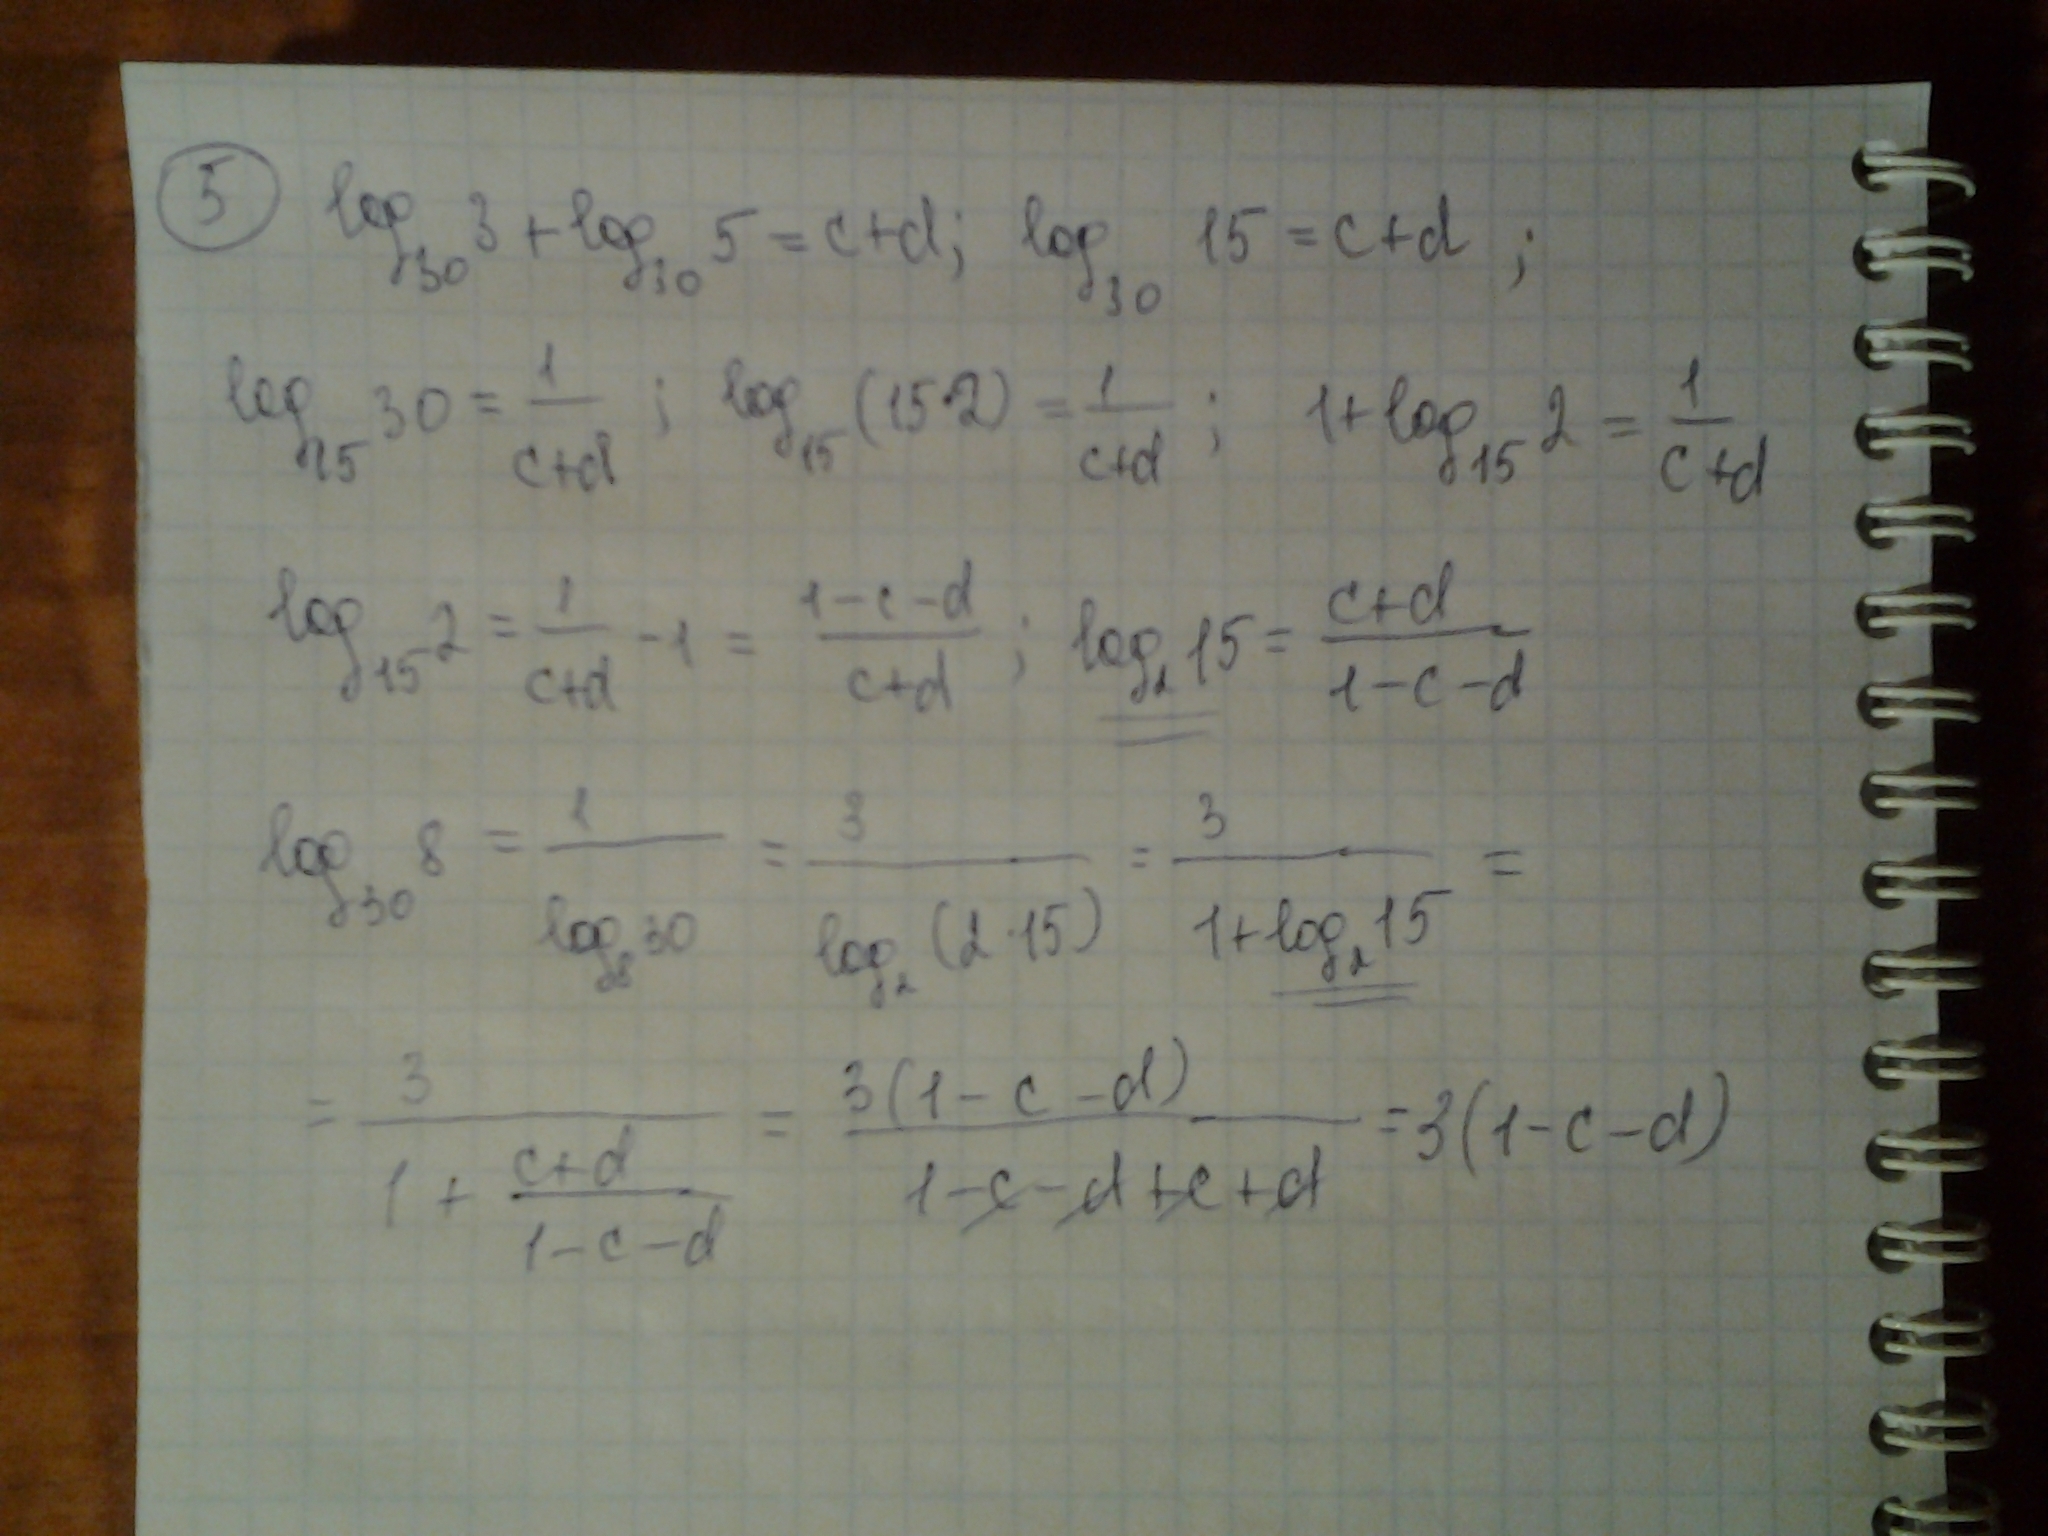 5 log₃₀ 3 + log₃₀ 5 = c+d; log₃₀ 15 = c+d ;
log₁₅ 30 = 1/(c+d) ; log₁₅ (15·2) = 1/(c+d) ; 1+log₁₅ 2 = 1/(c+d)
log₁₅ 2 = 1/(c+d) - 1 = (1-c-d)/(c+d) ; log₂ 15 = (c+d)/(1-c-d)
log₃₀ 8 = 1/(log₈ 30) = 3/(log₂ (2·15)) = 3/(1+log₂ 15) =
= 3/(1 + (c+d)/(1-c-d)) = 3(1-c-d)/(1-c-d+c+d) = 3(1-c-d)